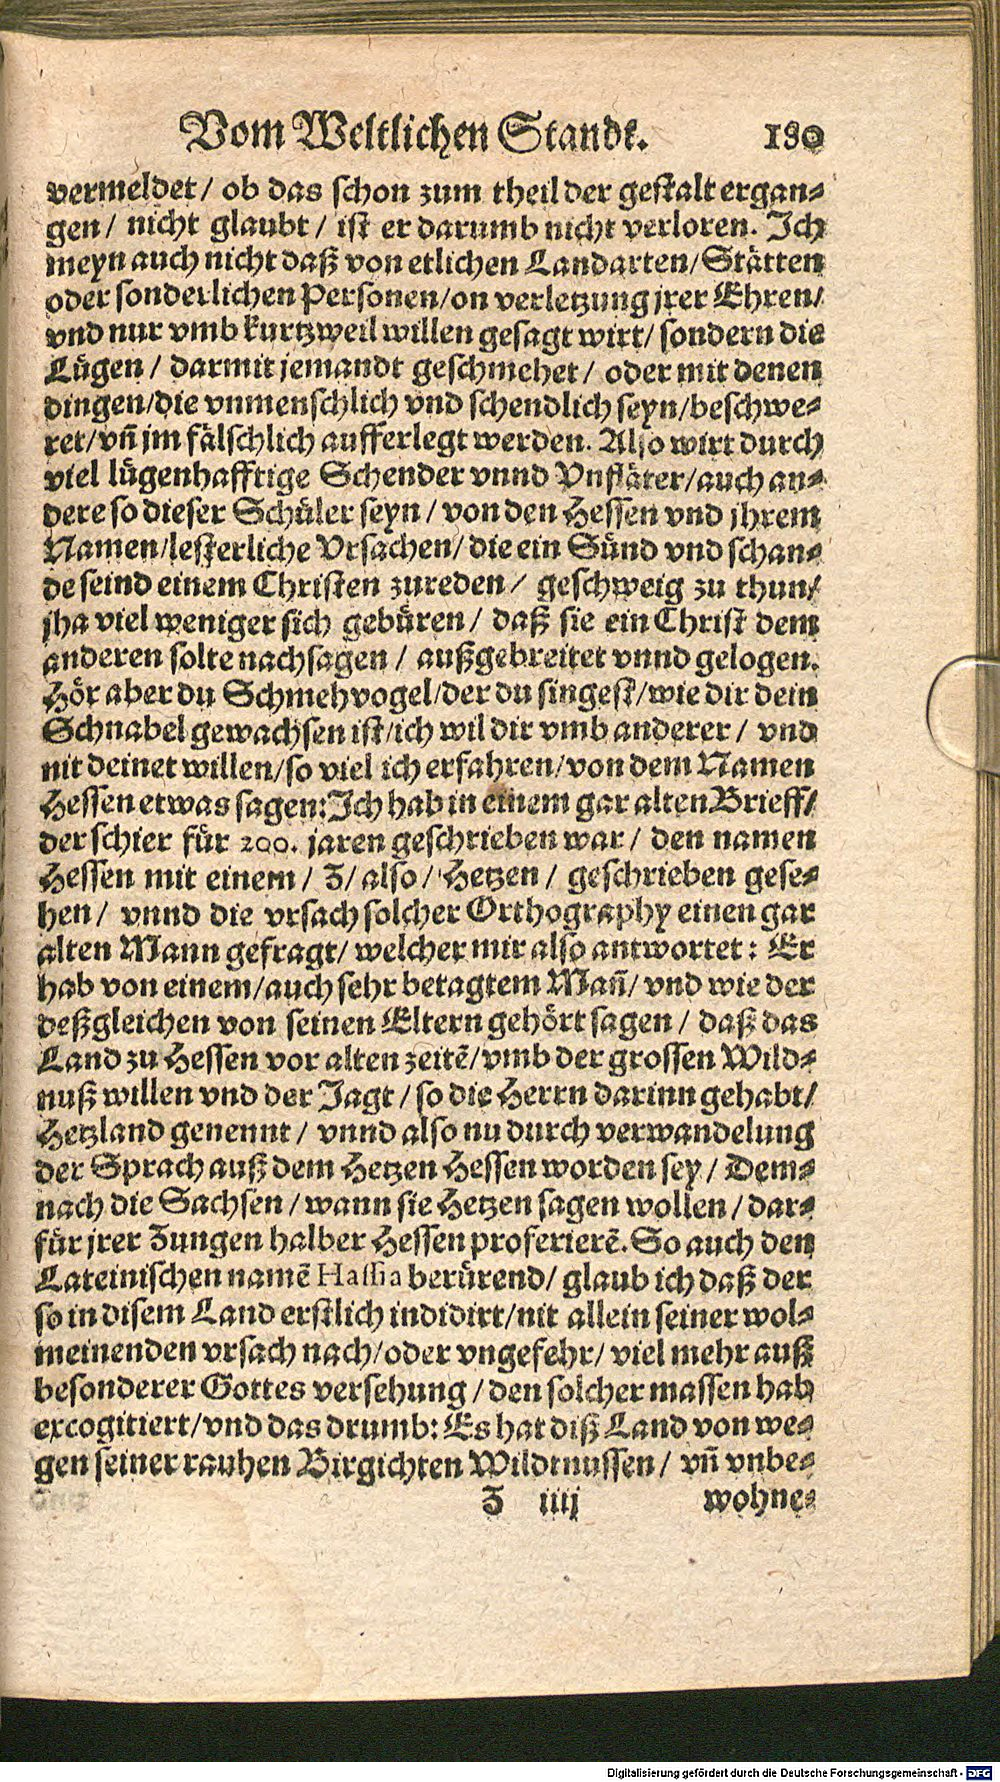 Vom Weltlichen Standt. 180
vermeldet/ ob das schon zum theil der gestalt ergan⸗
gen/ nicht glaubt/ ist er darumb nicht verloren. Ich
meyn auch nicht daß von etlichen Landarten/Stätten
oder sonderlichen Personen/on verletzung jrer Ehren/
vnd nur vmb kurtzweil willen gesagt wirt/ sondern die
Lügen/ darmit jemandt geschmehet/ oder mit denen
dingen/die vnmenschlich vnd schendlich seyn/beschwe⸗
ret/vñ jm fälschlich aufferlegt werden. Also wirt durch
viel lügenhafftige Schender vnnd Vnfläter/auch an⸗
dere so dieser Schüler seyn/ von den Hessen vnd jhrem
Namen/lesterliche Vrsachen/ die ein Sünd vnd schan⸗
de seind einem Christen zureden/ geschweig zu thun/
jha viel weniger sich gebüren/ daß sie ein Christ dem
anderen solte nachsagen/ außgebreitet vnnd gelogen.
Hör aber du Schmehvogel/der du singest/wie dir dein
Schnabel gewachsen ist/ich wil dir vmb anderer/ vnd
nit deinet willen/so viel ich erfahren/von dem Namen
Hessen etwas sagen: Ich hab in einem gar alten Brieff/
der schier für 200. jaren geschrieben war/ den namen
Hessen mit einem/ Z/ also/ Hetzen/ geschrieben gese⸗
hen/ vnnd die vrsach solcher Orthography einen gar
alten Mann gefragt/ welcher mir also antwortet: Er
hab von einem/auch sehr betagtem Mañ/ vnd wie der
deßgleichen von seinen Eltern gehört sagen/ daß das
Land zu Hessen vor alten zeitẽ/vmb der grossen Wild⸗
nuß willen vnd der Jagt/ so die Herrn darinn gehabt/
Hetzland genennt/ vnnd also nu durch verwandelung
der Sprach auß dem Hetzen Hessen worden sey/ Dem⸗
nach die Sachsen/ wann sie Hetzen sagen wollen/ dar⸗
für jrer Zungen halber Hessen proferierẽ. So auch den
Lateinischen namẽ Hassia berürend/ glaub ich daß der
so in disem Land erstlich indidirt/nit allein seiner wol⸗
meinenden vrsach nach/oder vngefehr/ viel mehr auß
besonderer Gottes versehung/ den solcher massen hab
excogitiert/vnd das drumb: Es hat diß Land von we⸗
gen seiner rauhen Birgichten Wildtnussen/ vñ vnbe⸗
Z iiij wohne⸗
Digitalisierung gefördert durch die Deutsche Forschungsgemeinschaft - DFG